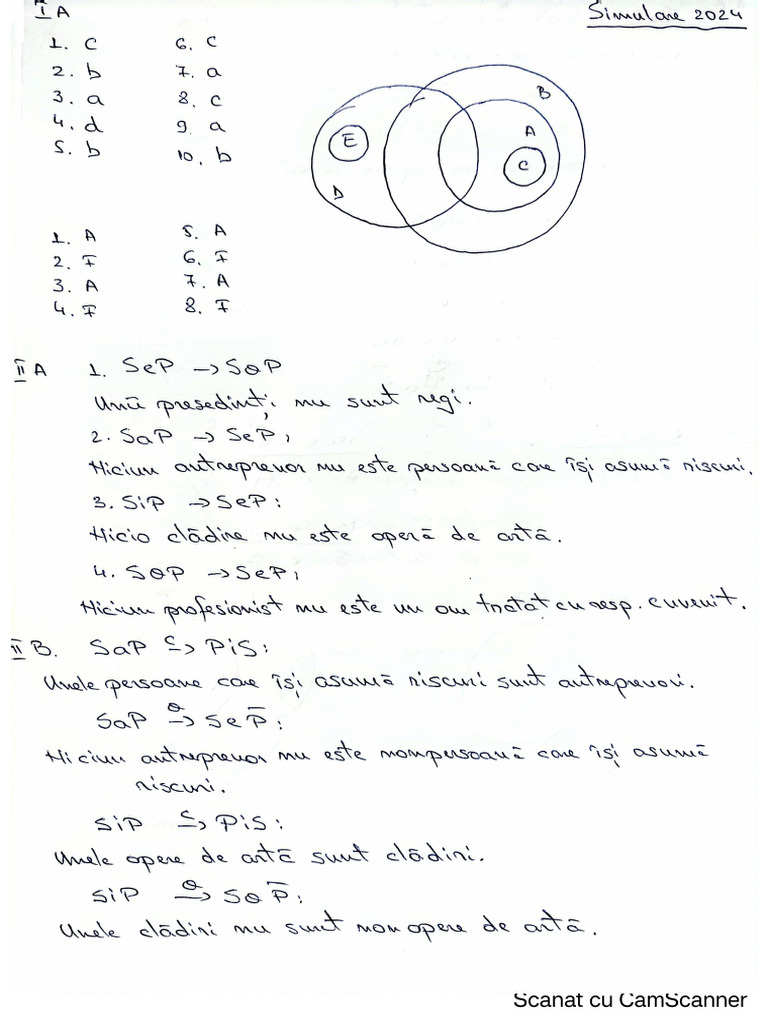 I A
Simulare 2024
1. c 6. c
2. b 7. a
3. a 8. c
4. d 9. a
5. b 10. b
E
D
B
A
C
1. A 5. A
2. F 6. F
3. A 7. A
4. F 8. F
II A 1. SeP → SoP
Unii președinți nu sunt regi.
2. SaP → SeP;
Niciun antreprenor nu este persoană care își asumă riscuri.
3. SiP → SeP:
Nicio clădire nu este operă de artă.
4. SoP → SeP;
Niciun profesionist nu este un om tratat cu resp. cuvenit.
II B. SaP c→ PiS:
Unele persoane care își asumă riscuri sunt antreprenori.
SaP o→ SeP̅:
Niciun antreprenor nu este nonpersoană care își asumă
riscuri.
SiP c→ PiS:
Unele opere de artă sunt clădiri.
SiP o→ SoP̅:
Unele clădiri nu sunt non opere de artă.
Scanat cu CamScanner